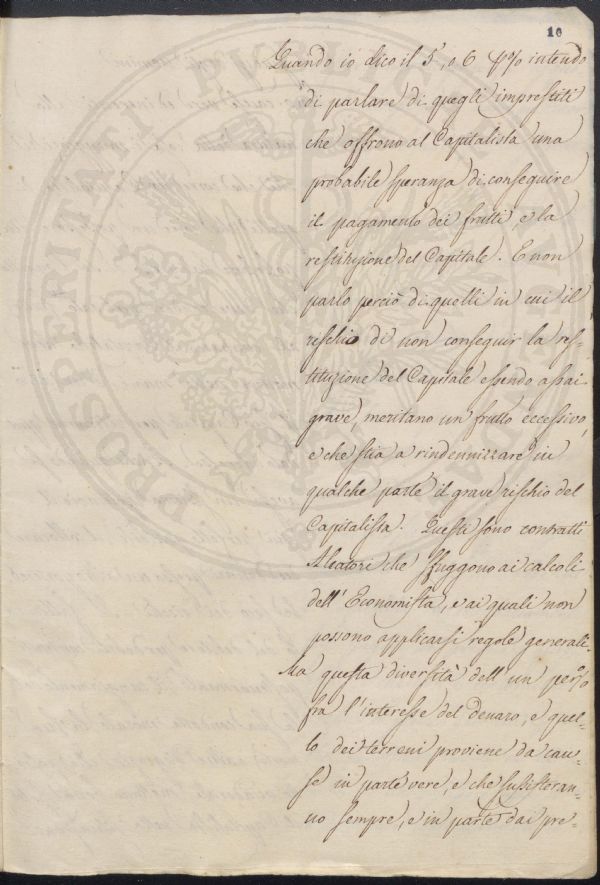 10
Quando io dico il 5, o 6 p% intendo
di parlare di quegli imprestiti
che offrono al Capitalista una
probabile speranza di conseguire
il pagamento dei frutti, e la
restituzione del Capitale. E non
parlo perciò di quelli in cui il
rischio di non conseguir la res-
tituzione del Capitale essendo assai
grave, meritano un frutto eccessivo,
e che stia a rindennizzare in
qualche parte il grave rischio del
Capitalista. Questi sono contratti
Aleatori che sfuggono ai calcoli
dell' Economista, e ai quali non
possono applicarsi regole generali.
Ma questa diversità dell' un per %
fra l'interesse del denaro, e quel-
lo dei terreni proviene da cau-
se in parte vere, e che sussisteran-
no sempre, e in parte dai pre-
PROSPERITATI PUBLICAE